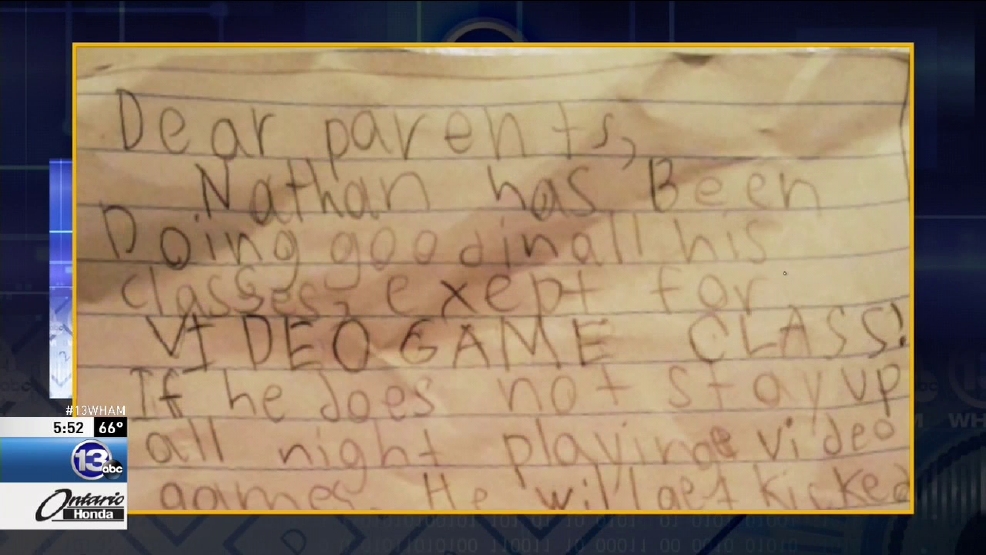 Dear parents,
Nathan has Been
Doing good in all his
classes, exept for
VIDEOGAME CLASS!
If he does not stay up
all night playing video
games. He will get kicked
#13WHAM
5:52 66°
13 abc
Ontario
Honda